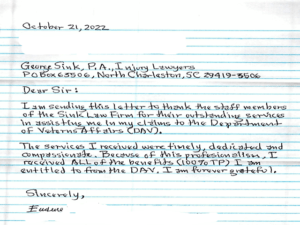 October 21, 2022
George Sink, P.A., Injury Lawyers
P O Box 63506, North Charleston, SC 29419-3506
Dear Sir:
I am sending this letter to thank the staff members
of the Sink Law Firm for their outstanding services
in assisting me in my claims to the Department
of Veterns Affairs (DAV).
The services I received were timely, dedicated and
compassionate. Because of this profesionalism, I
received ALL of the benefits (100% TP) I am
entitled to from the DAV. I am forever grateful.
Sincerely,